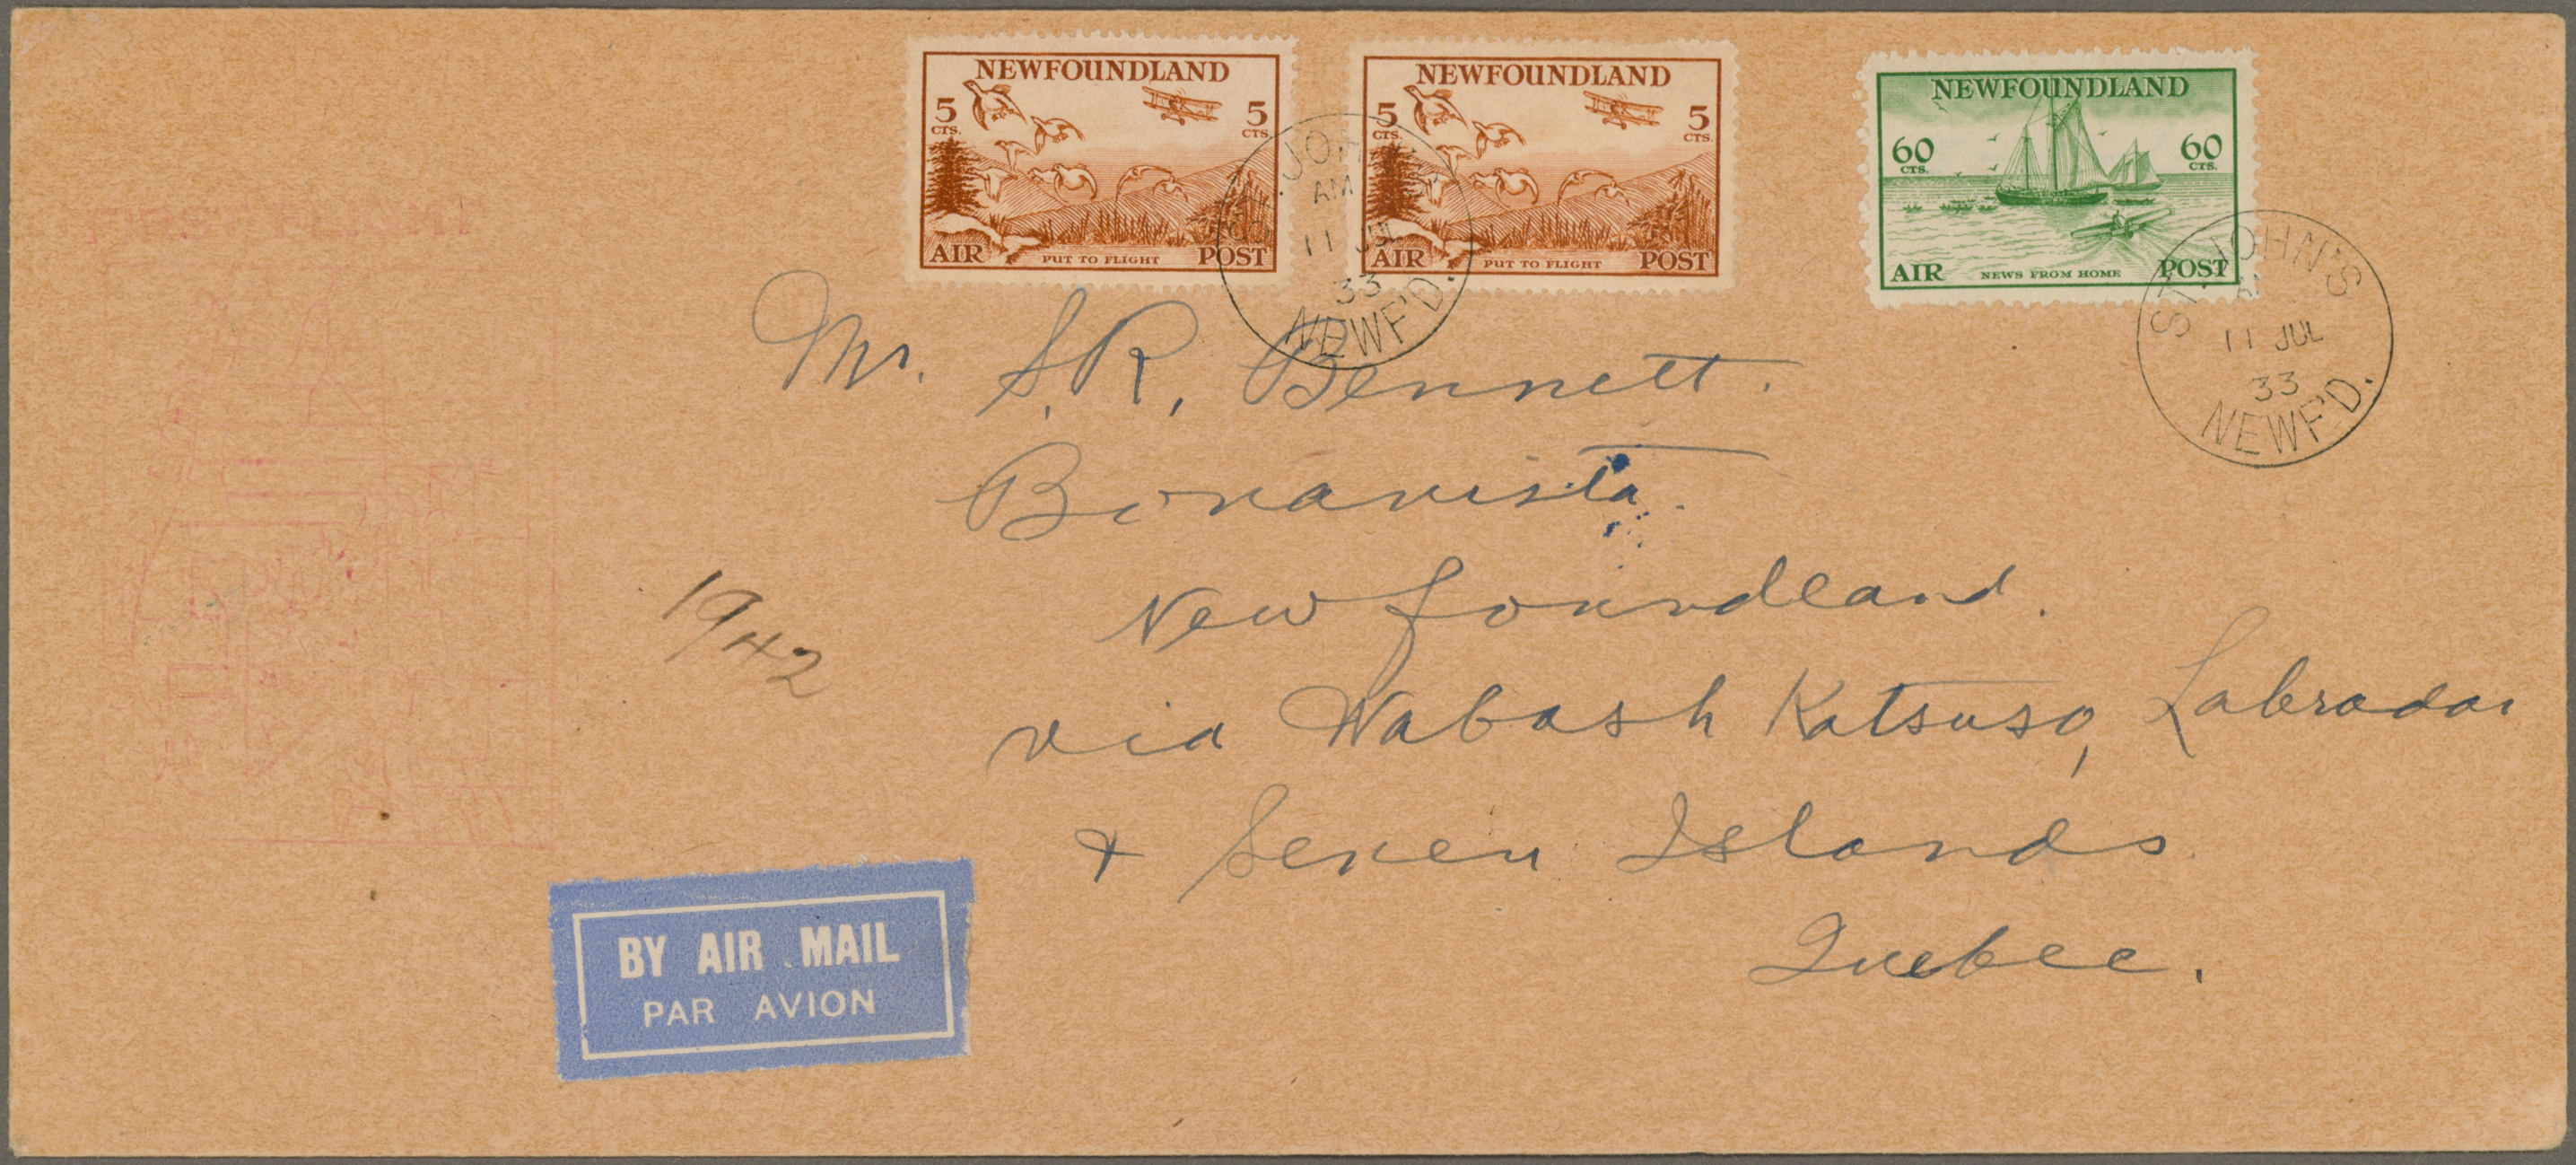 NEWFOUNDLAND
5 CTS. 5 CTS.
AIR PUT TO FLIGHT POST
NEWFOUNDLAND
5 CTS. 5 CTS.
AIR PUT TO FLIGHT POST
NEWFOUNDLAND
60 CTS. 60 CTS.
AIR NEWS FROM HOME POST
AM
11 JUL
33
NEWF'D.
ST. JOHN'S
11 JUL
33
NEWF'D.
Mr. S.R. Bennett.
Bonavista.
Newfoundland.
via Wabash Katsuso, Labrador
& Seven Islands
Quebec.
1942
BY AIR MAIL
PAR AVION